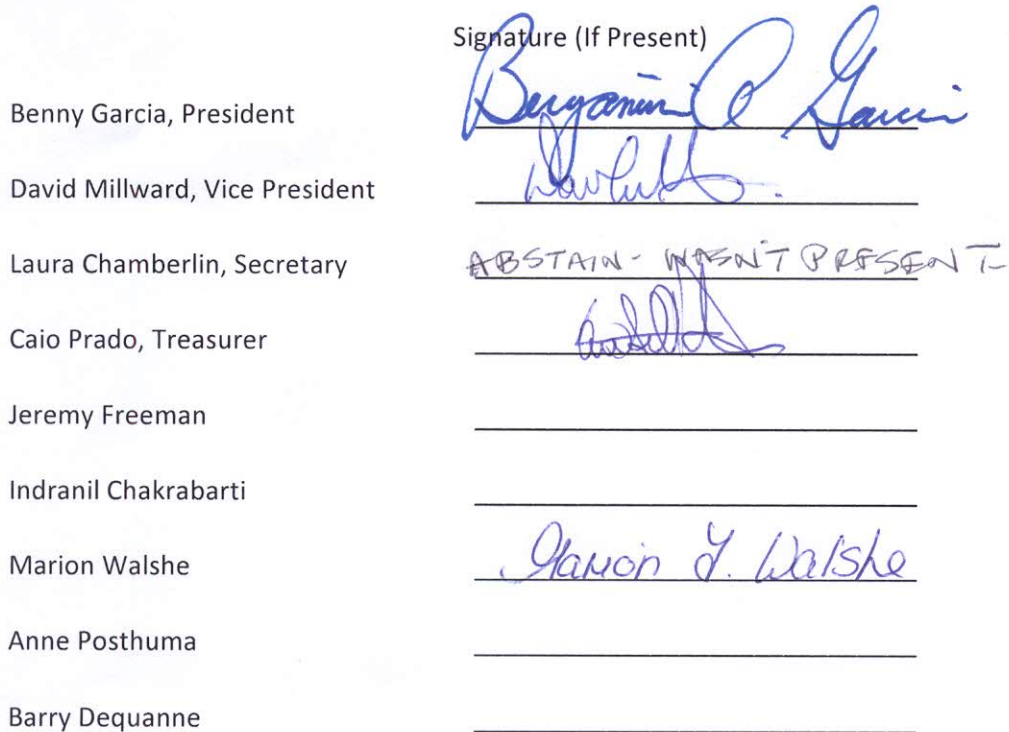 Signature (If Present)
Benny Garcia, President Benjamin P Garcia
David Millward, Vice President
Laura Chamberlin, Secretary ABSTAIN - WASN'T PRESENT
Caio Prado, Treasurer
Jeremy Freeman
Indranil Chakrabarti
Marion Walshe Marion J. Walshe
Anne Posthuma
Barry Dequanne